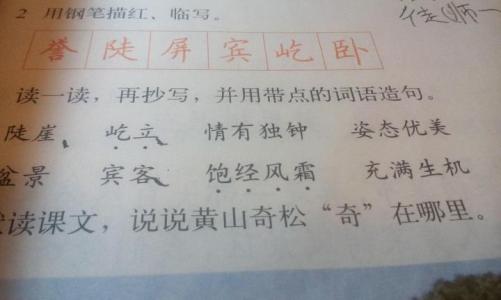 2 用钢笔描红、临写。
誉陡屏宾屹卧
读一读，再抄写，并用带点的词语造句。
陡崖 屹立 情有独钟 姿态优美
盆景 宾客 饱经风霜 充满生机
读课文，说说黄山奇松“奇”在哪里。